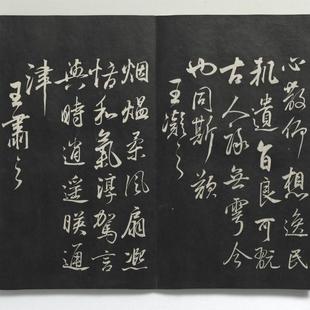 心敬仰想逸民
軌遺旨良可翫
古人詠無雩今
也同斯歎
王凝之
烟熅柔風扇熙
怡和氣淳駕言
興時逍遥暎通
津
王肅之